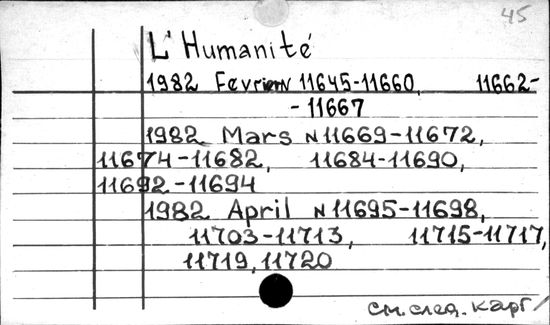 45
L'Humanité
1982 Fevrier N 11645-11660, 11662-
- 11667
1982 Mars N 11669-11672,
11674-11682, 11684-11690,
11692-11694
1982 April N 11695-11698,
11703-11713, 11715-11717,
11719, 11720
см. след. карт